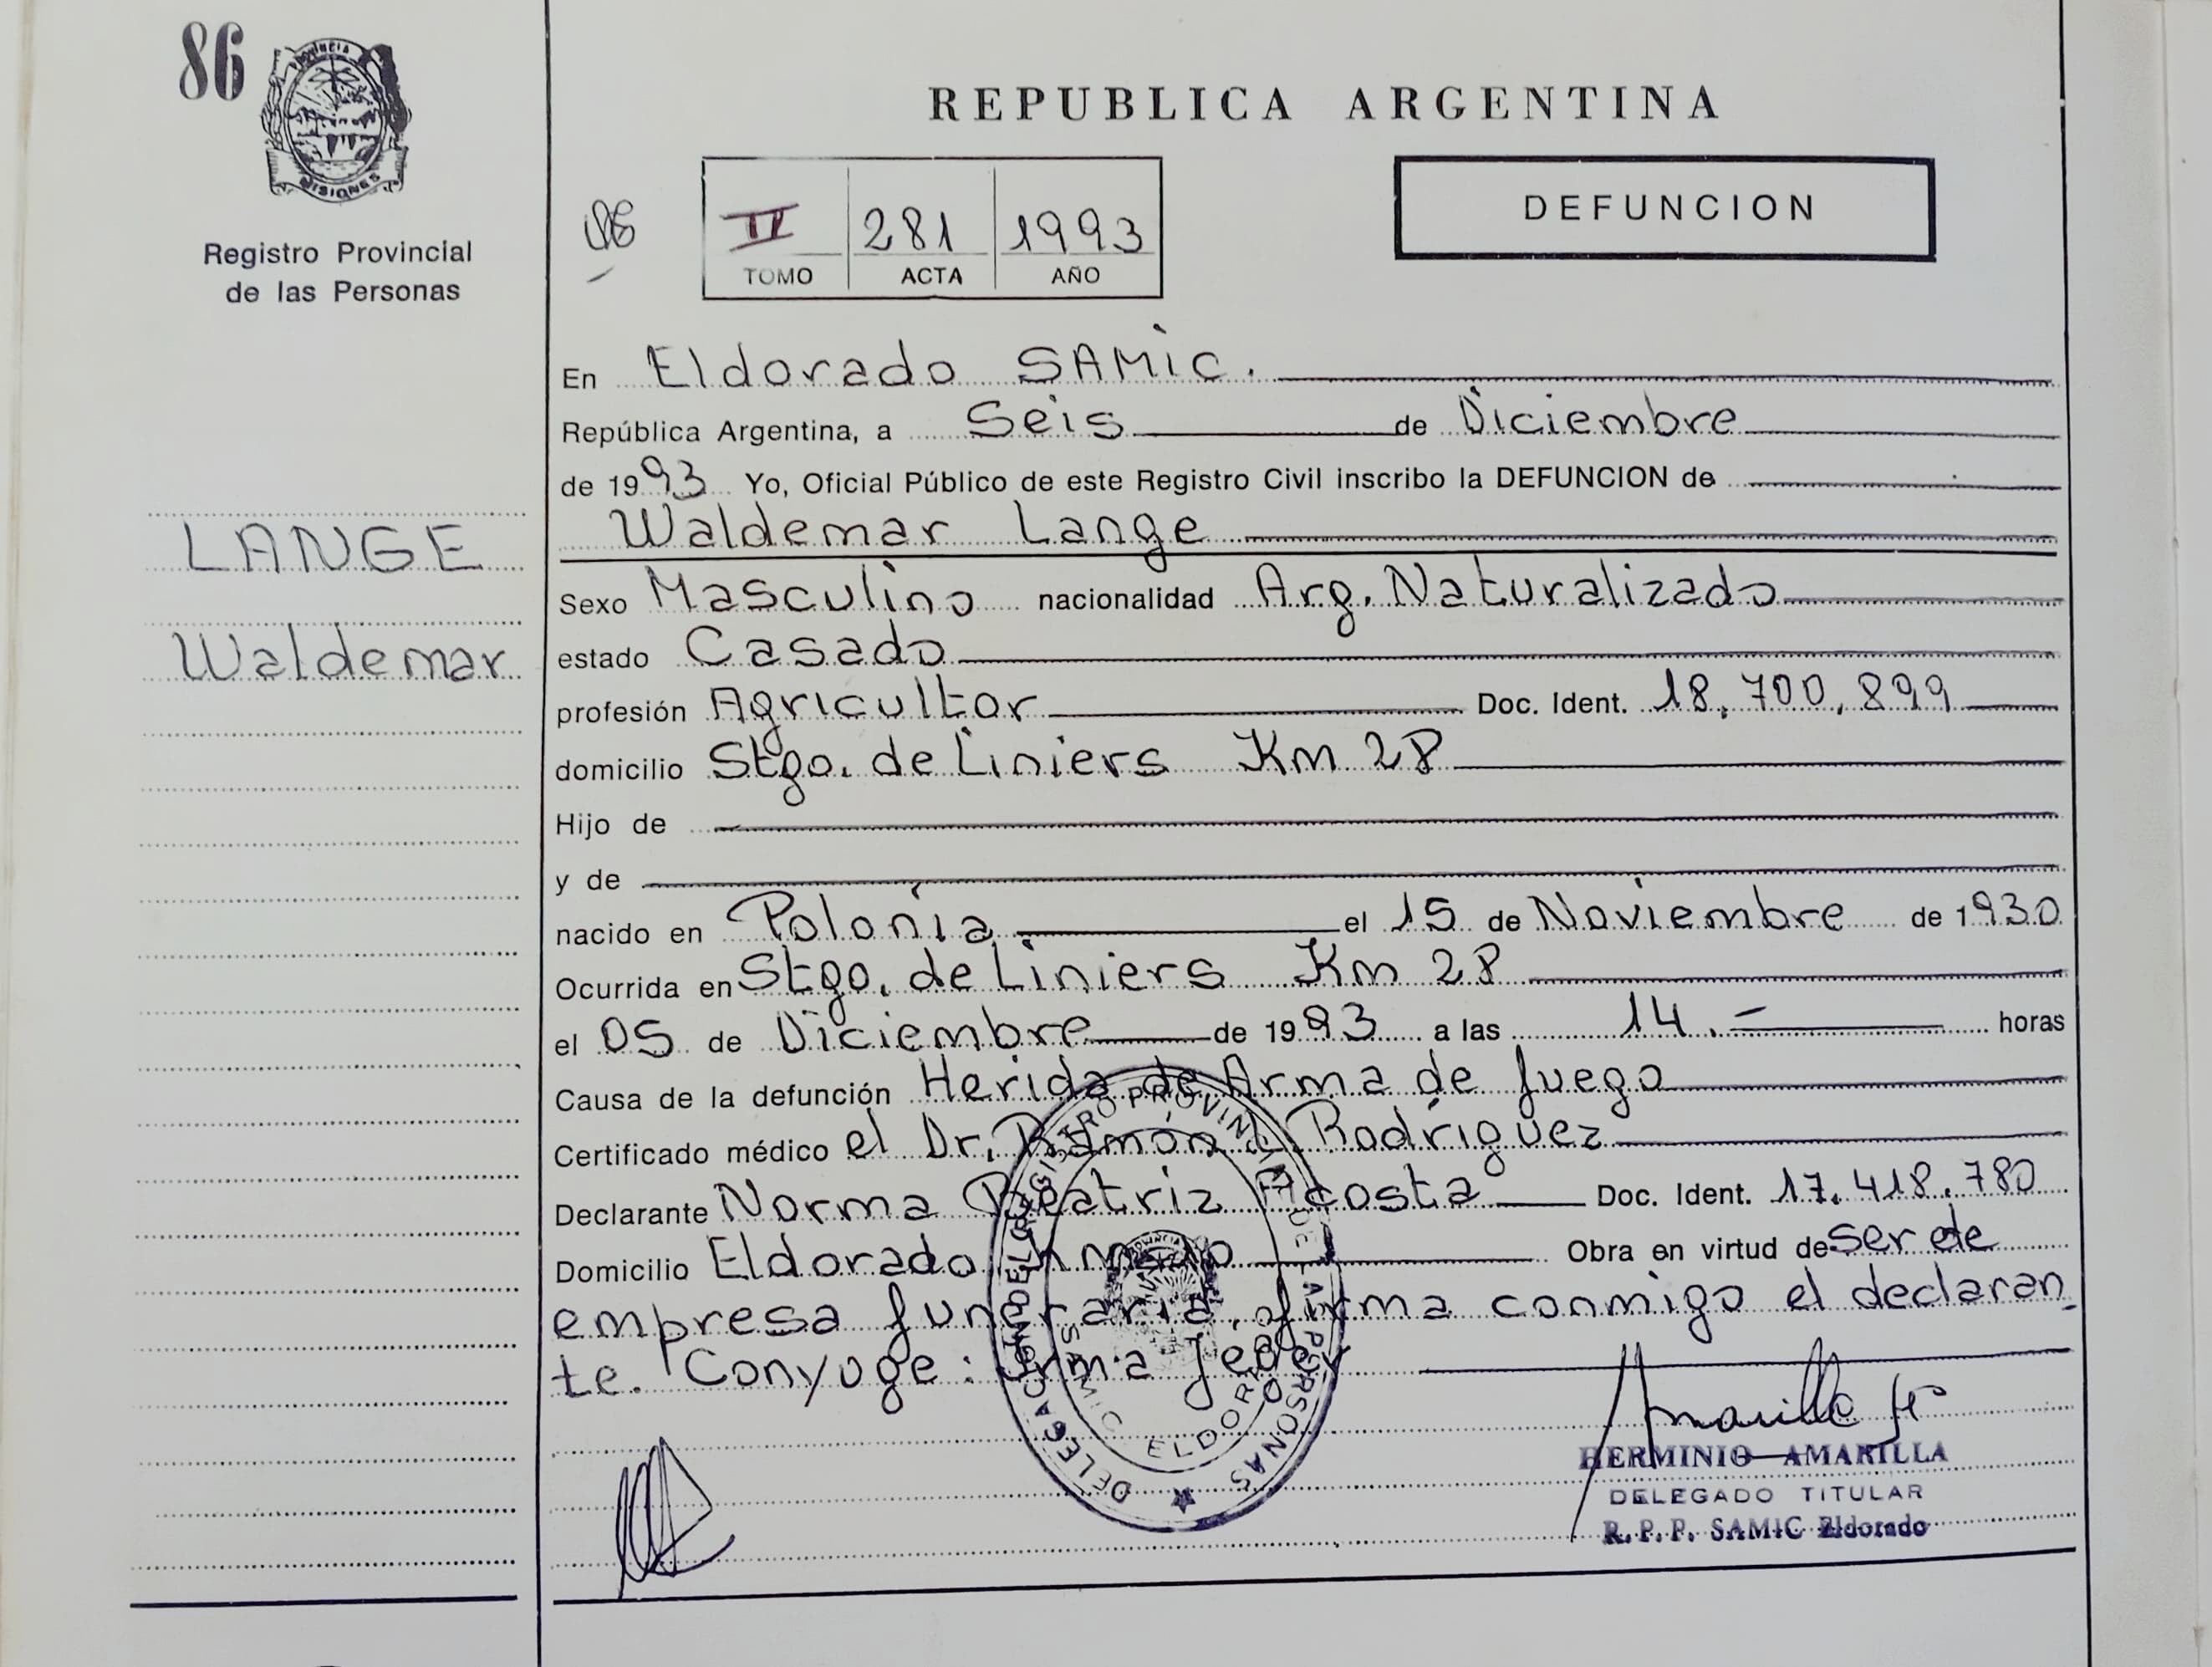 86
PROVINCIA
MISIONES
Registro Provincial
de las Personas
LANGE
Waldemar
REPUBLICA ARGENTINA
II 281 1993
TOMO ACTA AÑO
DEFUNCION
En Eldorado SAMic.
República Argentina, a Seis de Diciembre
de 1993 Yo, Oficial Público de este Registro Civil inscribo la DEFUNCION de
Waldemar Lange
Sexo Masculino nacionalidad Arg. Naturalizado
estado Casado
profesión Agricultor Doc. Ident. 18.700.899
domicilio Stgo. de Liniers Km 28
Hijo de
y de
nacido en Polonia el 15 de Noviembre de 1930
Ocurrida en Stgo. de Liniers Km 28
el 05 de Diciembre de 1993 a las 14.= horas
Causa de la defunción Herida de Arma de fuego
Certificado médico el Dr. Ramón Rodríguez
Declarante Norma Beatriz Acosta Doc. Ident. 17.418.780
Domicilio Eldorado Obra en virtud de ser de
empresa funeraria, firma conmigo el declaran
te. Conyuge: Irma
DELEGACION DEL REGISTRO PROVINCIAL DE LAS PERSONAS
SAMIC ELDORADO
HERMINIO AMARILLA
DELEGADO TITULAR
R. P. P. SAMIC Eldorado